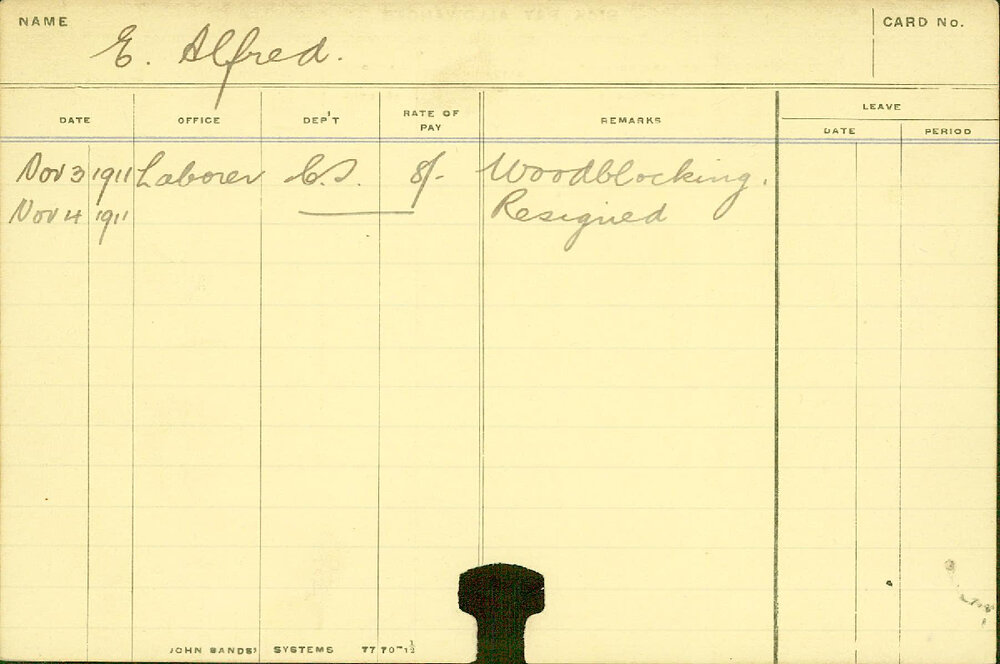 NAME E. Alfred. CARD No.
DATE OFFICE DEP'T RATE OF PAY REMARKS LEAVE
DATE PERIOD
Nov 3 1911 Laborer C.S. 8/- Woodblocking.
Nov 4 1911 Resigned
JOHN SANDS' SYSTEMS